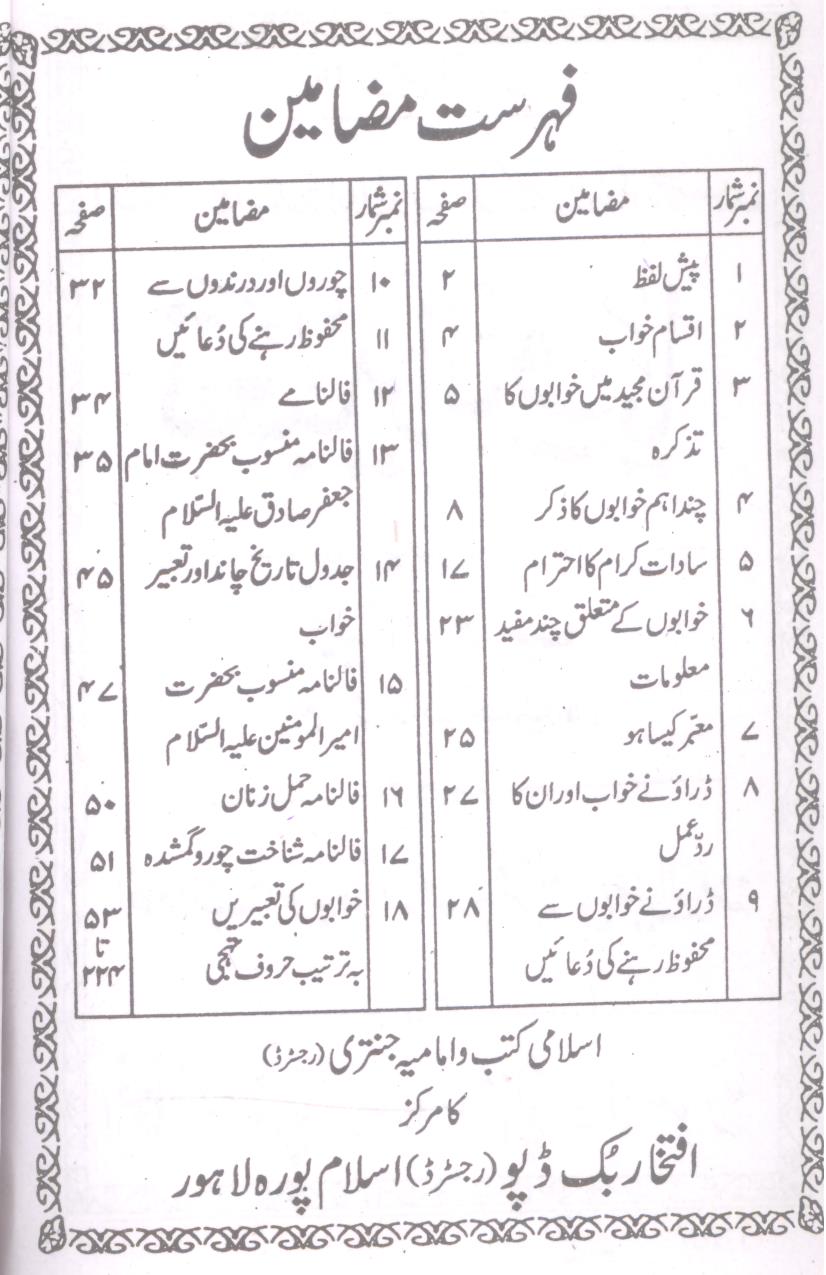 فہرست مضامین
نمبر شمار مضامین صفحہ
۱ پیش لفظ ۲
۲ اقسام خواب ۴
۳ قرآن مجید میں خوابوں کا ۵
تذکرہ
۴ چند اہم خوابوں کا ذکر ۸
۵ سادات کرام کا احترام ۱۷
۶ خوابوں کے متعلق چند مفید ۲۳
معلومات
۷ معبّر کیسا ہو ۲۵
۸ ڈراؤنے خواب اور ان کا ۲۷
ردِّ عمل
۹ ڈراؤنے خوابوں سے ۲۸
محفوظ رہنے کی دُعائیں
نمبر شمار مضامین صفحہ
۱۰ چوروں اور درندوں سے ۳۲
۱۱ محفوظ رہنے کی دُعائیں
۱۲ فالنامے ۳۴
۱۳ فالنامہ منسوب بحضرت امام ۳۵
جعفر صادق علیہ السّلام
۱۴ جدول تاریخ چاند اور تعبیر ۴۵
خواب
۱۵ فالنامہ منسوب بحضرت ۴۷
امیر المومنین علیہ السّلام
۱۶ فالنامہ حمل زنان ۵۰
۱۷ فالنامہ شناخت چور و گمشدہ ۵۱
۱۸ خوابوں کی تعبیریں ۵۳
تا
بہ ترتیب حروف تہجی ۲۲۴
اسلامی کتب و امامیہ جنتری (رجسٹرڈ)
کا مرکز
افتخار بُک ڈپو (رجسٹرڈ) اسلام پورہ لاہور